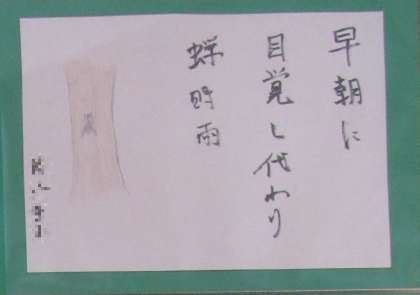 早朝に
目覚し代わり
蝉時雨